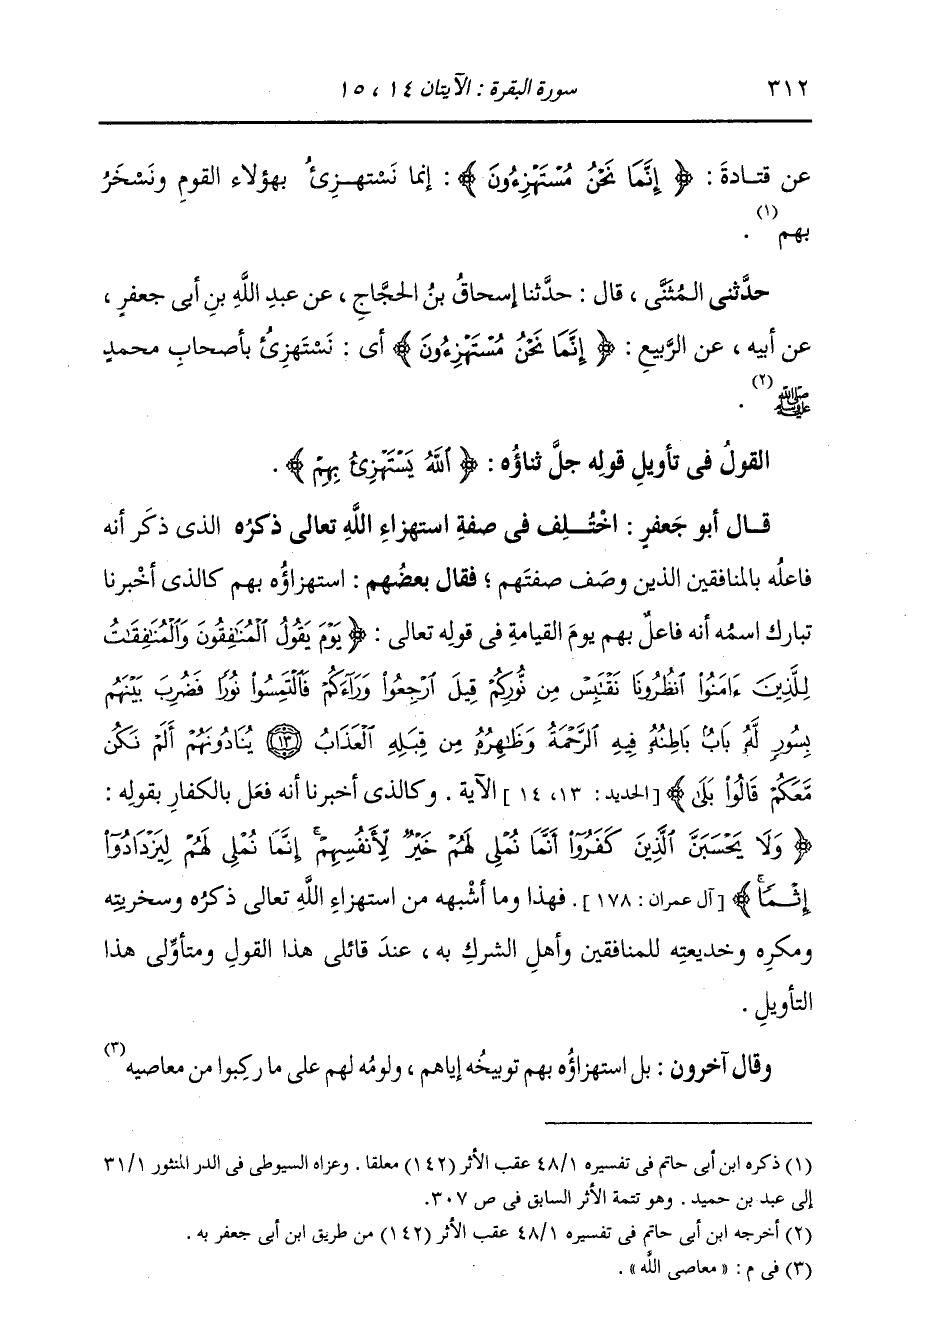 ٣١٢ سورة البقرة : الآيتان ١٤ ، ١٥
عن قتادةَ : ﴿ إِنَّمَا نَحْنُ مُسْتَهْزِءُونَ ﴾ : إنما نَسْتهـزِئُ بهؤلاء القومِ ونَسْخَرُ
بهم(١) .
حدَّثنى المُثَنَّى ، قال : حدَّثنا إسحاقُ بنُ الحَجَّاجِ ، عن عبدِ اللَّهِ بنِ أبى جعفرٍ ،
عن أبيه ، عن الرَّبيعِ : ﴿ إِنَّمَا نَحْنُ مُسْتَهْزِءُونَ ﴾ أى : نَسْتَهزِئُ بأصحابِ محمدٍ
ﷺ(٢) .
القولُ فى تأويلِ قولِه جلَّ ثناؤُه : ﴿ ٱللَّهُ يَسْتَهْزِئُ بِهِمْ ﴾ .
قـال أبو جَعفرٍ : اخْتُـلِف فى صفةِ استهزاءِ اللَّهِ تعالى ذكرُه الذى ذكَر أنه
فاعلُه بالمنافقين الذين وصَف صفتَهم ؛ فقال بعضُهم : استهزاؤُه بهم كالذى أخْبرنا
تبارك اسمُه أنه فاعلٌ بهم يومَ القيامةِ فى قولِه تعالى : ﴿ يَوْمَ يَقُولُ ٱلْمُنَٰفِقُونَ وَٱلْمُنَٰفِقَٰتُ
لِلَّذِينَ ءَامَنُوا۟ ٱنظُرُونَا نَقْتَبِسْ مِن نُّورِكُمْ قِيلَ ٱرْجِعُوا۟ وَرَآءَكُمْ فَٱلْتَمِسُوا۟ نُورًا فَضُرِبَ بَيْنَهُم
بِسُورٍ لَّهُۥ بَابٌۢ بَاطِنُهُۥ فِيهِ ٱلرَّحْمَةُ وَظَٰهِرُهُۥ مِن قِبَلِهِ ٱلْعَذَابُ ١٣ يُنَادُونَهُمْ أَلَمْ نَكُن
مَّعَكُمْ قَالُوا۟ بَلَىٰ ﴾ [الحديد : ١٣، ١٤ ] الآية . وكالذى أخبرنا أنه فعَل بالكفارِ بقولِه :
﴿ وَلَا يَحْسَبَنَّ ٱلَّذِينَ كَفَرُوٓا۟ أَنَّمَا نُمْلِى لَهُمْ خَيْرٌ لِّأَنفُسِهِمْ ۚ إِنَّمَا نُمْلِى لَهُمْ لِيَزْدَادُوٓا۟
إِثْمًا ۚ ﴾ [آل عمران : ١٧٨ ] . فهذا وما أشْبهه من استهزاءِ اللَّهِ تعالى ذكرُه وسخريتِه
ومكرِه وخديعتِه للمنافقين وأهلِ الشركِ به ، عندَ قائلى هذا القولِ ومتأوِّلى هذا
التأويلِ .
وقال آخرون : بل استهزاؤُه بهم توبيخُه إياهم ، ولومُه لهم على ما ركِبوا من معاصيه(٣)
(١) ذكره ابن أبى حاتم فى تفسيره ٤٨/١ عقب الأثر (١٤٢) معلقا . وعزاه السيوطى فى الدر المنثور ٣١/١
إلى عبد بن حميد . وهو تتمة الأثر السابق فى ص ٣٠٧.
(٢) أخرجه ابن أبى حاتم فى تفسيره ٤٨/١ عقب الأثر (١٤٢) من طريق ابن أبى جعفر به .
(٣) فى م : « معاصى اللَّه » .